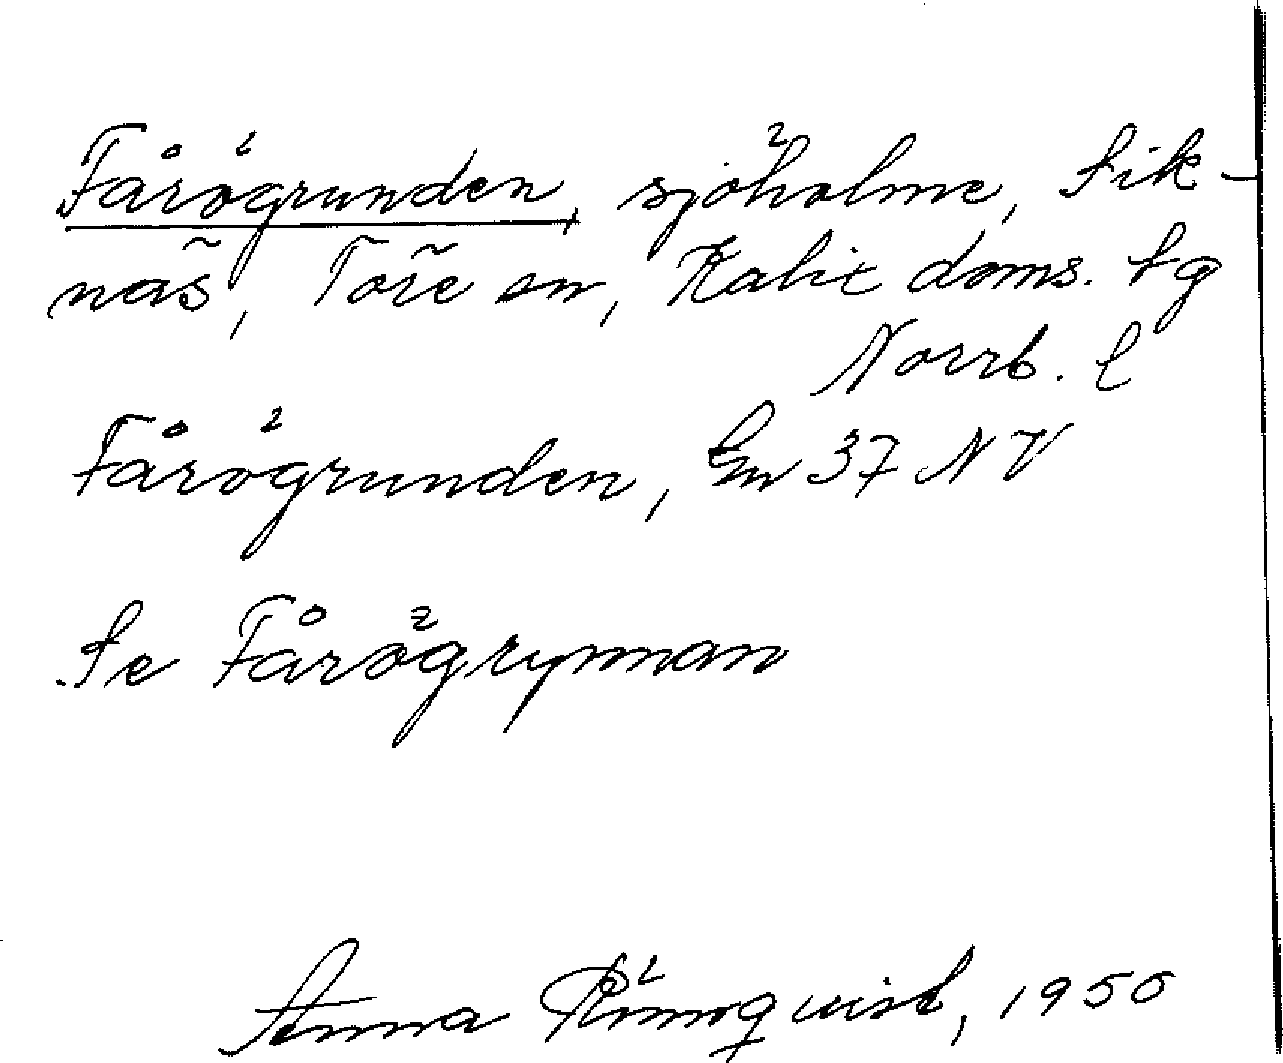 Fårögrunden, sjöholme, Sik-
näs, Töre sn, Kalix doms. lg
Norrb. l
Fårögrunden, Gn 37 NV
Se Fårögrynnan
Anna 1950